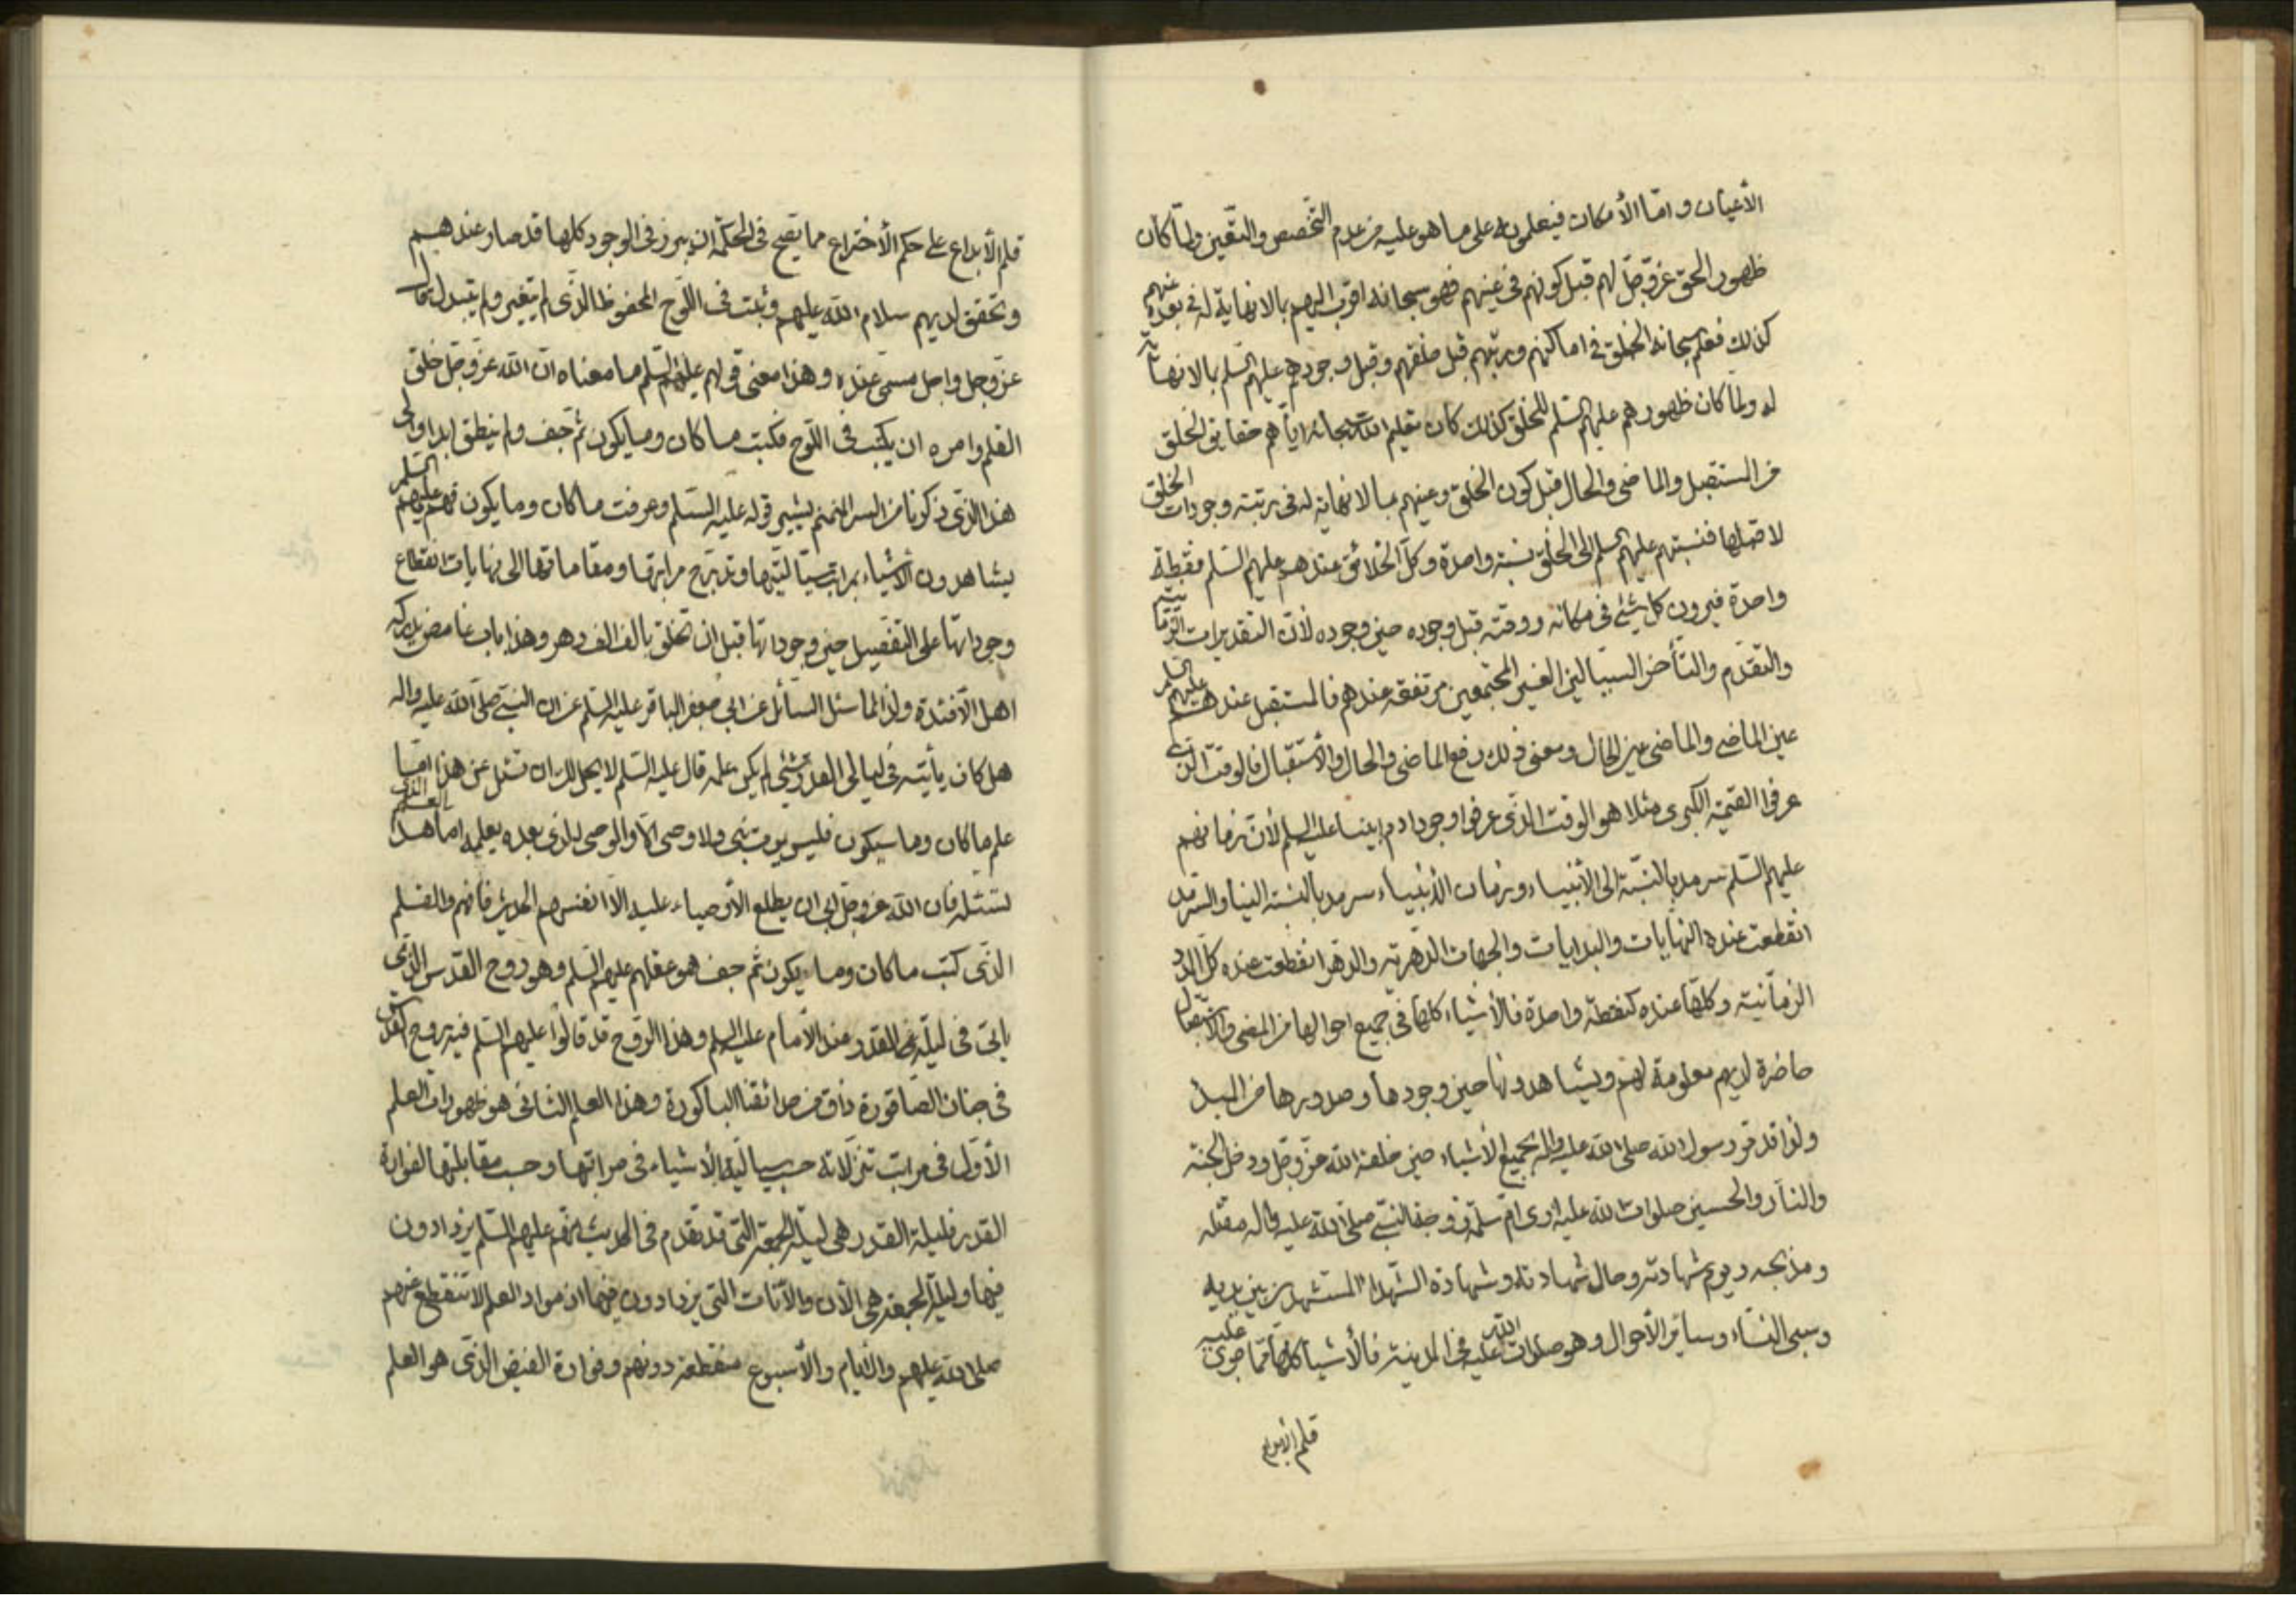 الأعيان واما الأمكان فيعلمونه على ما هو عليه من عدم التخصص والتعين ولما كان
ظهور الحق عز وجل لهم قبل كونهم في عينهم فهو سبحانه اقرب اليهم بالانهاية له في بعده عنهم
كذلك فعلم سبحانه الخلق في اماكنهم ورتبهم قبل خلقهم وقبل وجودهم عليهم السلم بالانهاية
له ولما كان ظهورهم عليهم السلم للخلق كذلك كان تعليم الله سبحانه اياهم حقايق الخلق
من المستقبل والماضي والحال قبل كون الخلق وعينهم بما لانهاية له في رتبته وجودات الخلق
فنسبتهم عليهم السلم الى الخلق نسبة واحدة وكل الخلائق عندهم عليهم السلم كنقطة
واحدة فيرون كل شئ في مكانه ووقته قبل وجوده حين وجوده لأن التقديرات الزمانية
والتقدم والتأخر السيالين الغير المجتمعين مرتفعة عندهم فالمستقبل عندهم عليهم السلم
عين الماضي والماضي عين الحال ومعنى ذلك رفع الماضي والحال والأستقبال فالوقت الذي
عرفوا القيمة الكبرى مثلا هو الوقت الذي عرفوا وجود ادم ابينا عليه السلم لأن زمانهم
عليهم السلم سرمد بالنسبة الى الأنبياء وزمان الأنبياء سرمد بالنسبة الينا والسرمد
انقطعت عنده النهايات والبدايات والجهات الدهرية والدهر انقطعت عنده كل الحدود
الزمانية وكلها عنده كنقطة واحدة فالأشياء كلها في جميع احوالها من المضى والاستقبال
حاضرة لديهم معلومة لهم ويشاهدونها حين وجودها وصدورها من المبدا
ولذا قد مر رسول الله صلى الله عليه واله بجميع الأشياء حين خلقه الله عز وجل ودخل الجنة
والنار والحسين صلوات الله عليه ارى ام سلمة زوجة النبي صلى الله عليه واله مقتله
ومذبحه ويوم شهادته وحال شهادته وشهادة الشهداء المستشهدين بين يديه
وسبى النساء وسائر الأحوال وهو صلوات الله عليه في المدينة فالأشياء كلها مما جرى عليه
قلم الابداع
قلم الأبداع على حكم الأختراع مما يصح في الحكمة ان يبرز في الوجود كلها قد صار عندهم
وتحقق لديهم سلام الله عليهم وثبت في اللوح المحفوظ الذي لم يتغير ولم يتبدل
عز وجل واجل مسمى عنده وهذا معنى قولهم عليهم السلم ما معناه ان الله عز وجل خلق
القلم وامره ان يكتب في اللوح فكتب ما كان وما يكون ثم جف ولم ينطق ابدا والى
هذا الذي ذكرنا من السر المنمنم يشير قوله عليه السلم وعرفت ما كان وما يكون فهم عليهم السلم
يشاهدون الأشياء بمراتب سياليتها وتدرج مراتبها ومقاماتها الى نهايات انقطاع
وجوداتها على التفصيل حين وجوداتها قبل ان تخلق بالف الف دهر وهذا باب غامض يدركه
اهل الأفئدة ولذا لما سئل السائل عن ابي جعفر الباقر عليه السلم عن ان النبي صلى الله عليه واله
هل كان يأتيه في ليالي القدر شئ لم يكن علمه قال عليه السلم لا يحل لك ان تسئل عن هذا اما
علم ما كان وما سيكون فليس يموت نبي ولا وصي الا والوصي الذي بعده يعلمه اما هذا العلم الذي
تسئله فان الله عز وجل ابى ان يطلع الأوصياء عليه الا انفسهم الحديث فافهم والقلم
الذي كتب ما كان وما يكون ثم جف هو عقلهم عليهم السلم وهو روح القدس الذي
يأتي في ليلة القدر عند الأمام عليه السلم وهذا الروح قد قالوا عليهم السلم فيه روح القدس
في جنان الصاقورة ذاق من حدائقنا الباكورة وهذا العلم الثاني هو ظهورات العلم
الأول في مراتب تنزلاته حسب سيالية الأشياء في مراتبها وحسب مقابلتها لفوارة
القدر فليلة القدر هي ليلة الجمعة التي قد تقدم في الحديث انهم عليهم السلم يزدادون
فيها وليلة الجمعة هي الأن والأنات التي يزدادون فيها اذ مواد العلم لا تنقطع عنهم
صلى الله عليهم والأيام والأسبوع منقطعة دونهم وفوارة الفيض الذي هو العلم